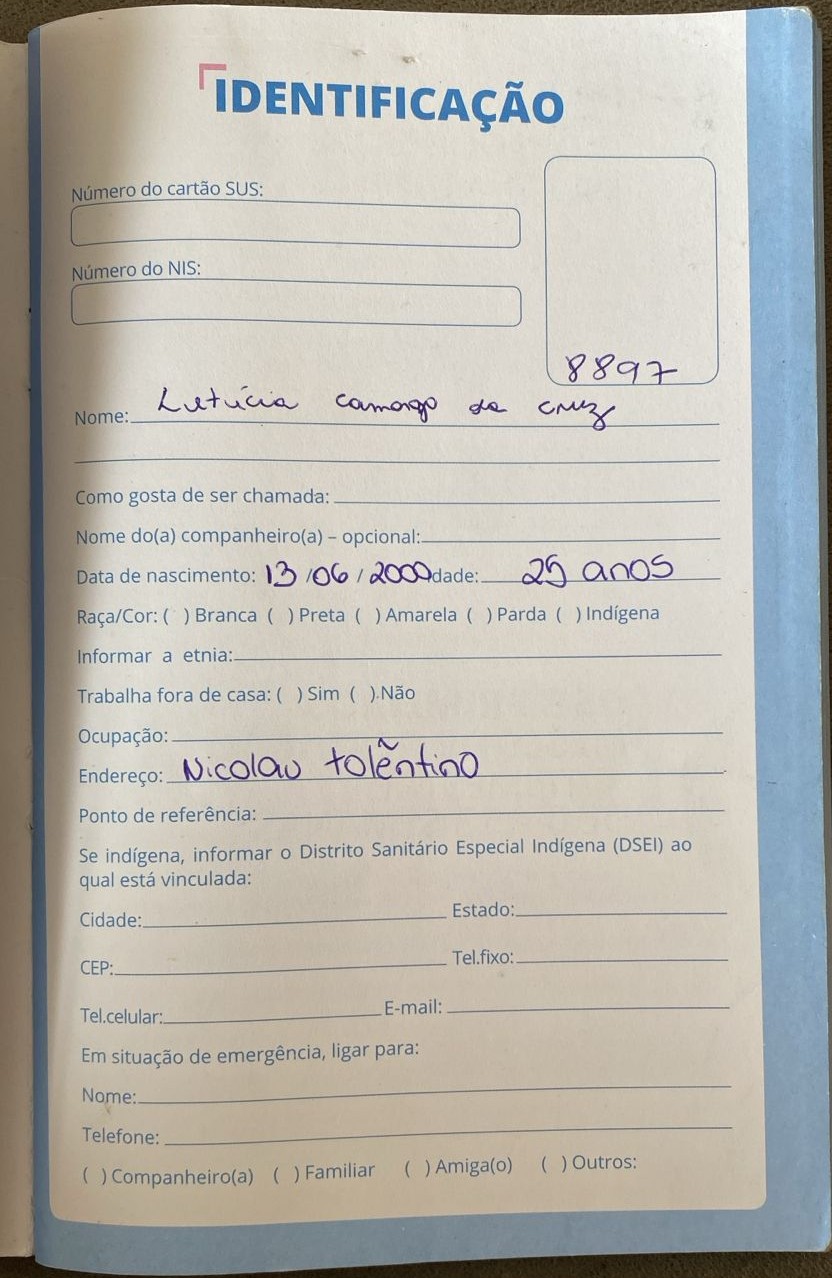 IDENTIFICAÇÃO
Número do cartão SUS:
Número do NIS:
8897
Nome: Letícia camargo da cruz
Como gosta de ser chamada:
Nome do(a) companheiro(a) – opcional:
Data de nascimento: 13 /06 / 2000 Idade: 25 anos
Raça/Cor: ( ) Branca ( ) Preta ( ) Amarela ( ) Parda ( ) Indígena
Informar a etnia:
Trabalha fora de casa: ( ) Sim ( ) Não
Ocupação:
Endereço: Nicolau tolẽntino
Ponto de referência:
Se indígena, informar o Distrito Sanitário Especial Indígena (DSEI) ao
qual está vinculada:
Cidade: Estado:
CEP: Tel.fixo:
Tel.celular: E-mail:
Em situação de emergência, ligar para:
Nome:
Telefone:
( ) Companheiro(a) ( ) Familiar ( ) Amiga(o) ( ) Outros: